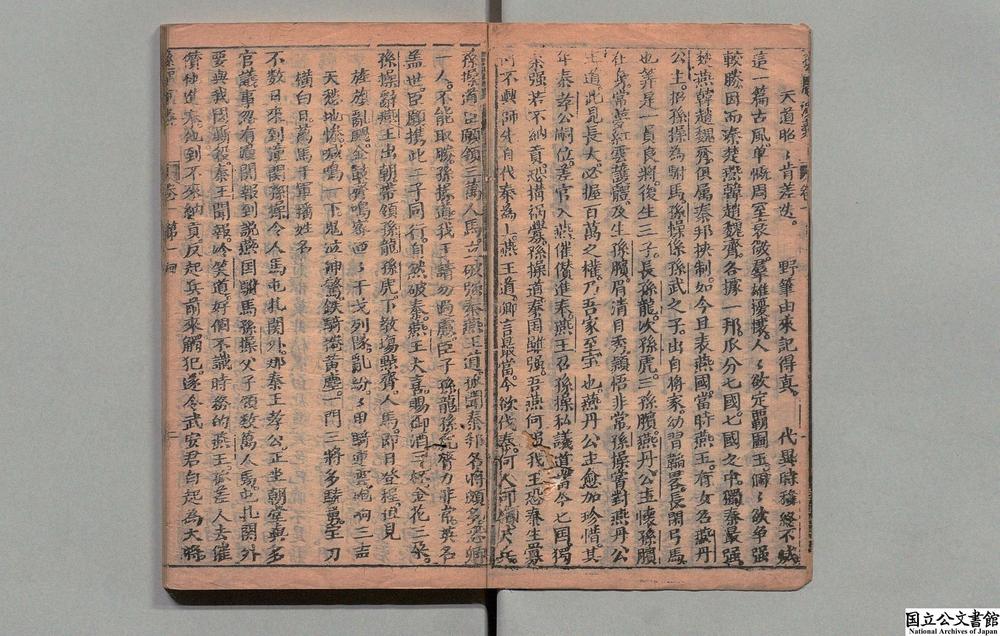 天道昭〻肯差迭。　野筆由來記得真。　代異時移終不㓕
這一篇古風。單慨周室衰微。羣雄擾攘。人〻欲定覇圖王。個〻欲爭強
較勝。因而秦楚燕韓趙魏齊。各據一邦。瓜分七國。七國之中。獨秦最強。
楚燕韓趙魏齊俱属秦邦挾制。如今且表燕國。當時燕王。有女名燕丹
公主。招孫操為駙馬。孫操係孫武之子。出自將家。幼習韜畧。長閑弓馬。
也筭是一員良將。後生三子。長孫龍。次孫虎。三孫臏。燕丹公主懷孫臏
在身。常燕紅雲護體。及生孫臏。眉清目秀。頴悟非常。孫操嘗對燕丹公
主道。此兒長大必握百萬之權。乃吾家至宝也。燕丹公主愈加珍惜。其
年秦孝公嗣位。差官入燕催儹進奉。燕王召孫操私議道。當今七国。獨
秦强。若不納貢。恐搆禍釁。孫操道。秦国雖强。吾燕何弱。我王恐秦生釁
何不興師。先自代秦為上。燕王道。卿言最當。今欲伐秦。何人可領大兵。
孫操道。臣願領三萬人馬。立破强秦。燕王道。孤聞秦邦名將頗多。恐卿
一人。不能取勝。孫操道。我王請勿過慮。臣子孫龍孫虎。膂力非常。英名
盖世。臣願携此二子同行。自然破秦。燕王大喜。賜御酒三杯。金花三朶。
孫操辭燕王出朝。帶領孫龍孫虎。下教塲點齊人馬。即日登程。但見
旌旌亂颭。金鼓齊鳴。密密〻干戈列隊。亂紛〻甲騎連雲。吶响三吉
天愁地慘。喊鳴一下。鬼泣神驚。鉄騎捲黃塵。一門三將多驍勇。宝刀
橫白日。萬馬千軍播姓名
不数日來到潼関。孫操令人馬屯扎関外。那秦王孝公。正坐朝堂。與多
官議事。忽有邊関報到。説燕国駙馬孫操父子。領数萬人馬。屯扎関外
要與我国厮殺。秦王聞報。冷笑道。好個不識時務的燕王。孤差人去催
儹他進奉。他到不來納貢。反起兵前來觸犯。遂令武安君白起為大將。
国立公文書館
National Archives of Japan